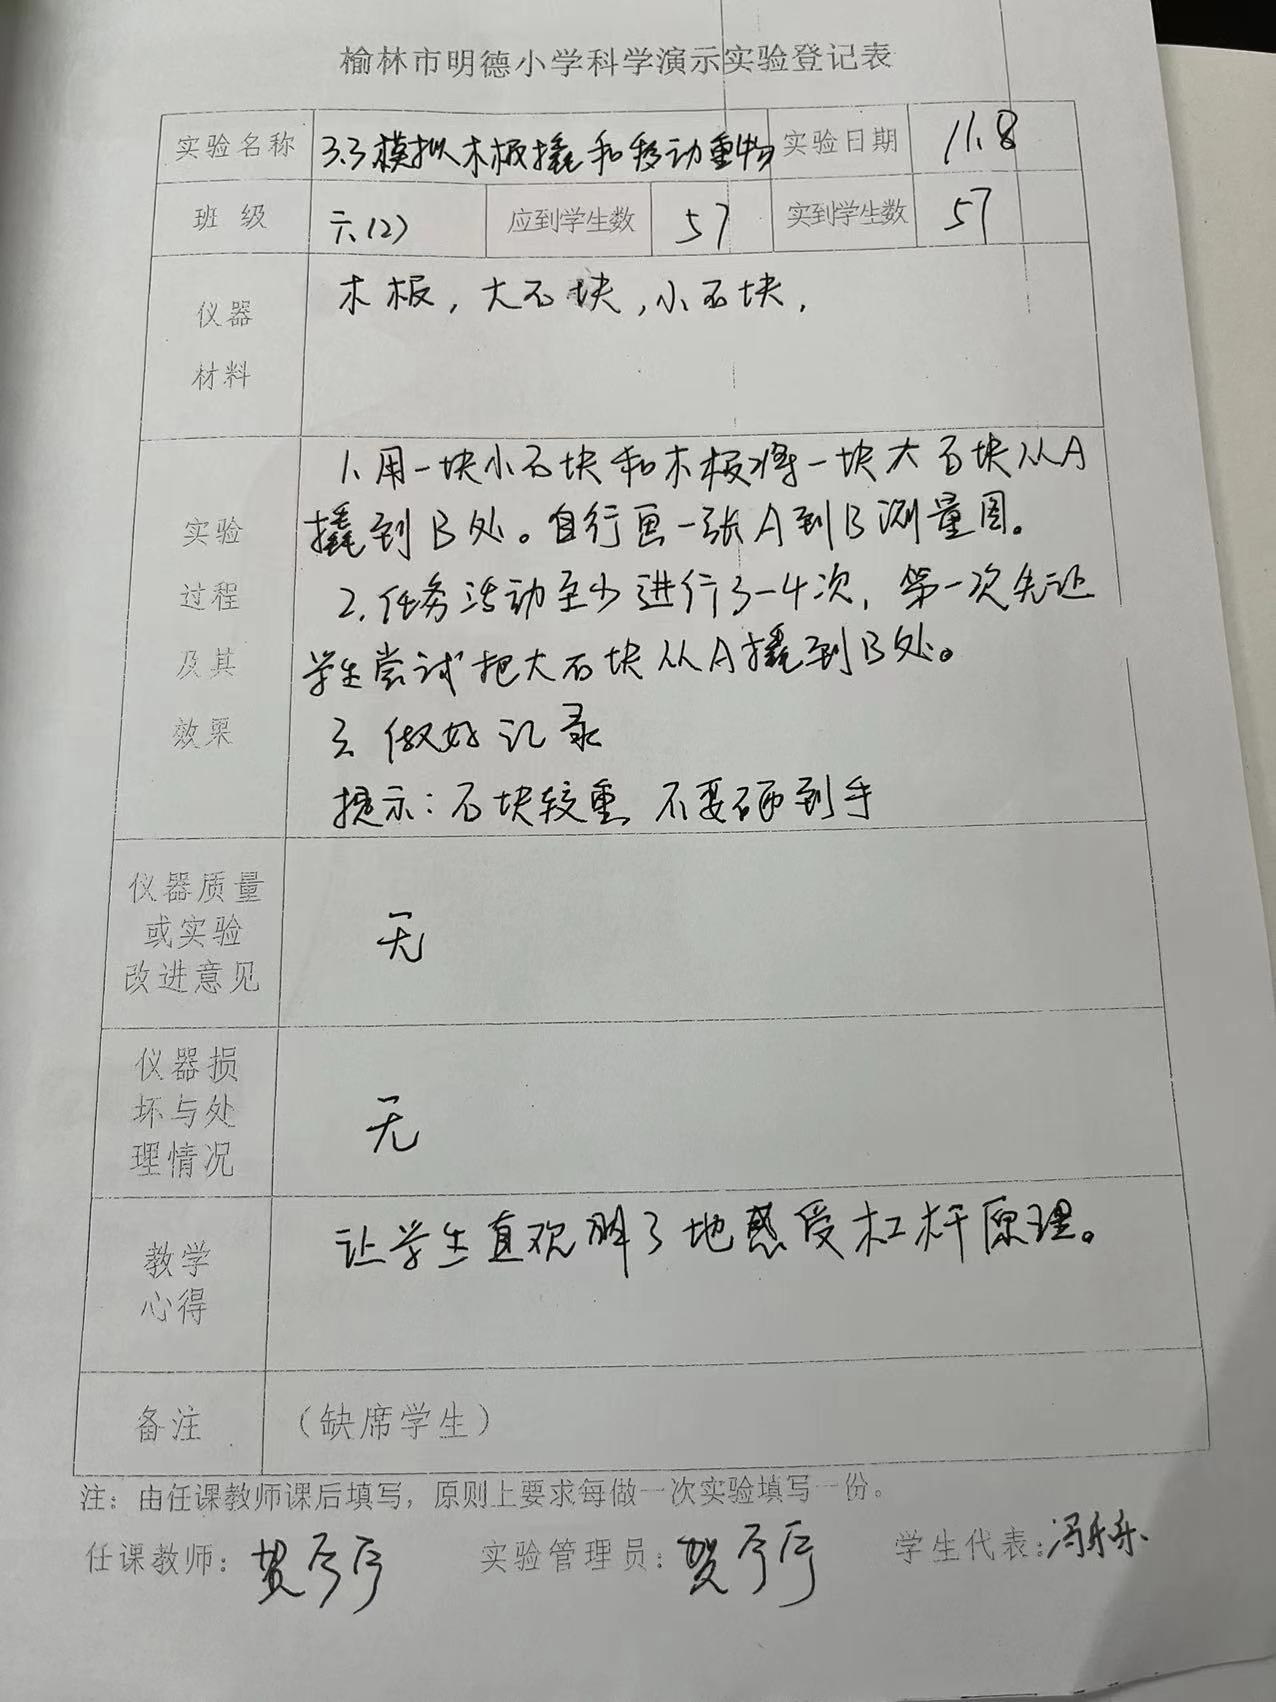 榆林市明德小学科学演示实验登记表
实验名称 3.3模拟木板撬和移动重物 实验日期 11.8
班级 六(2) 应到学生数 57 实到学生数 57
仪器
材料
木板，大石块，小石块，
实验
过程
及其
效果
1、用一块小石块和木板将一块大石块从A
撬到B处。自行画一张A到B测量图。
2、任务活动至少进行3-4次，第一次先让
学生尝试把大石块从A撬到B处。
3、做好记录
提示：石块较重 不要砸到手
仪器质量
或实验
改进意见
无
仪器损
坏与处
理情况
无
教学
心得
让学生直观解了地感受杠杆原理。
备注 （缺席学生）
注：由任课教师课后填写，原则上要求每做一次实验填写一份。
任课教师： 实验管理员： 学生代表：冯乐乐